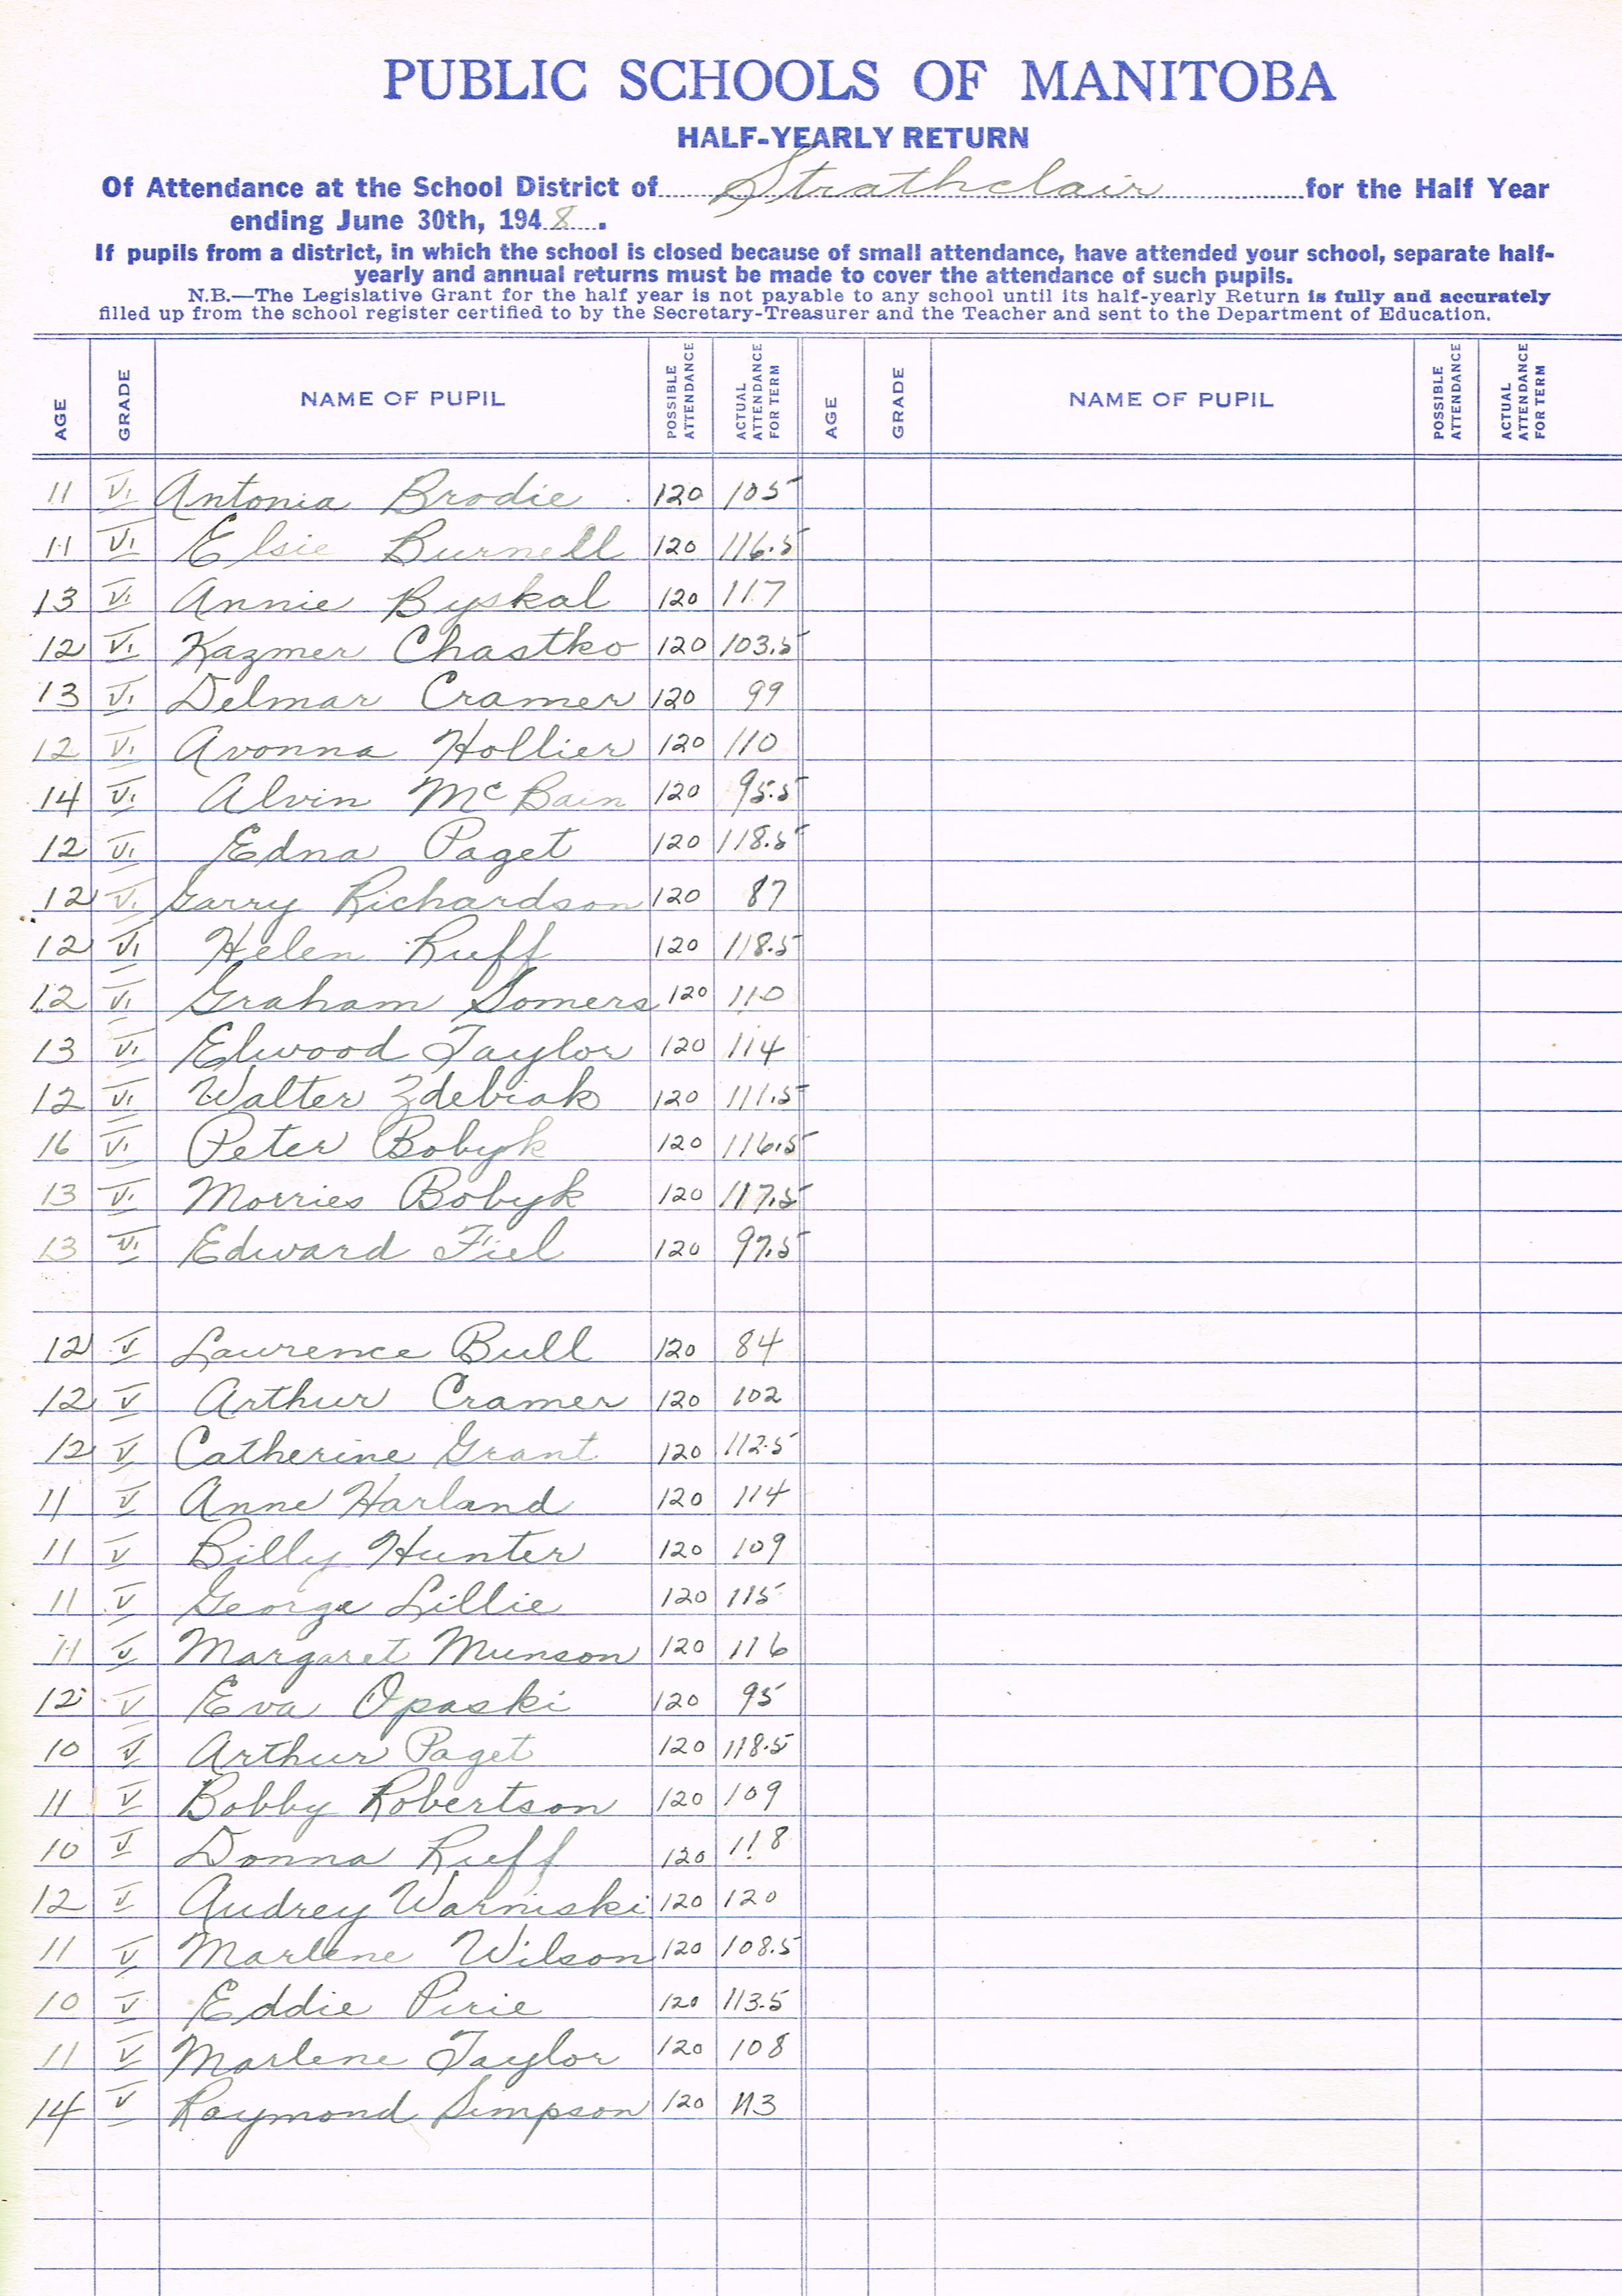 PUBLIC SCHOOLS OF MANITOBA
HALF-YEARLY RETURN
Of Attendance at the School District of Strathclair for the Half Year
ending June 30th, 1948.
If pupils from a district, in which the school is closed because of small attendance, have attended your school, separate half-
yearly and annual returns must be made to cover the attendance of such pupils.
N.B.—The Legislative Grant for the half year is not payable to any school until its half-yearly Return is fully and accurately
filled up from the school register certified to by the Secretary-Treasurer and the Teacher and sent to the Department of Education.
AGE GRADE NAME OF PUPIL POSSIBLE ATTENDANCE ACTUAL ATTENDANCE FOR TERM AGE GRADE NAME OF PUPIL POSSIBLE ATTENDANCE ACTUAL ATTENDANCE FOR TERM
11 VI Antonia Brodie 120 105
11 VI Elsie Burnell 120 116.5
13 VI Annie Byskal 120 117
12 VI Kazmer Chastko 120 103.5
13 VI Delmar Cramer 120 99
12 VI Avonna Hollier 120 110
14 VI Alvin McBain 120 95.5
12 VI Edna Paget 120 118.5
12 VI Garry Richardson 120 87
12 VI Helen Ruff 120 118.5
12 VI Graham Somers 120 110
13 VI Elwood Taylor 120 114
12 VI Walter Zdebiak 120 111.5
16 VI Peter Bobyk 120 116.5
13 VI Morries Bobyk 120 117.5
13 VI Edward Fiel 120 97.5
12 V Laurence Bull 120 84
12 V Arthur Cramer 120 102
12 V Catherine Grant 120 112.5
11 V Anne Harland 120 114
11 V Billy Hunter 120 109
11 V George Lillie 120 115
11 V Margaret Munson 120 116
12 V Eva Opaski 120 95
10 V Arthur Paget 120 118.5
11 V Bobby Robertson 120 109
10 V Donna Ruff 120 118
12 V Audrey Warniski 120 120
11 V Marlene Wilson 120 108.5
10 V Eddie Pirie 120 113.5
11 V Marlene Taylor 120 108
14 V Raymond Simpson 120 113